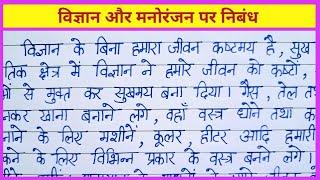 विज्ञान और मनोरंजन पर निबंध
विज्ञान के बिना हमारा जीवन कष्टमय है, सुख
तिक क्षेत्र में विज्ञान ने हमारे जीवन को कष्टो,
ओं से मुक्त कर सुखमय बना दिया। गैस, तेल तथ
नकर खाना बनाने लगे, वहाँ वस्त्र धोने तथा क
नाने के लिए मशीनें, कूलर, हीटर आदि हमारी
कने के लिए विभिन्न प्रकार के वस्त्र बनने लगे।